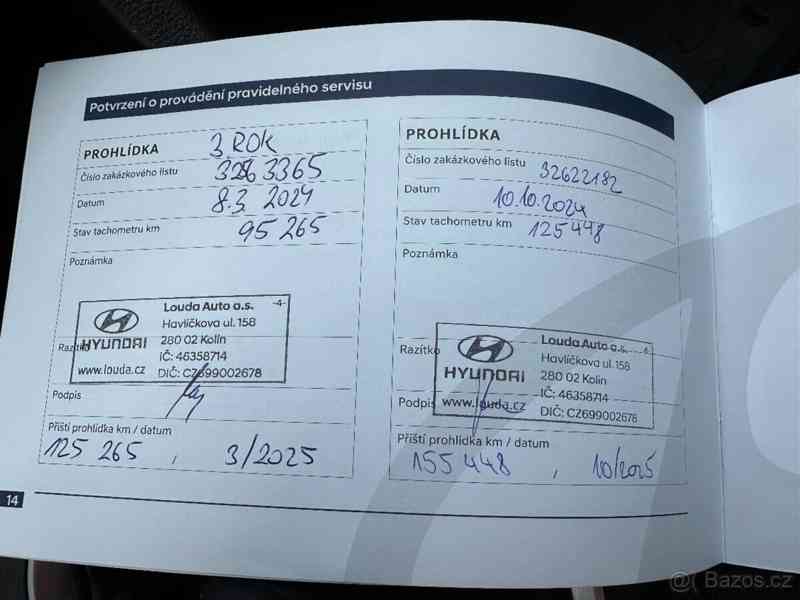 Potvrzení o provádění pravidelného servisu
PROHLÍDKA 3 ROK
Číslo zakázkového listu 3263365
Datum 8.3. 2024
Stav tachometru km 95 265
Poznámka
Razítko
HYUNDAI
www.louda.cz
Louda Auto a.s. -4-
Havlíčkova ul. 158
280 02 Kolín
IČ: 46358714
DIČ: CZ699002678
Podpis
Příští prohlídka km / datum
125 265 , 3/2025
PROHLÍDKA
Číslo zakázkového listu 32622182
Datum 10.10.2024
Stav tachometru km 125448
Poznámka
Razítko
HYUNDAI
www.louda.cz
Louda Auto a.s. -6-
Havlíčkova ul. 158
280 02 Kolín
IČ: 46358714
DIČ: CZ699002678
Podpis
Příští prohlídka km / datum
155 448 , 10/2025
14
@( Bazos.cz